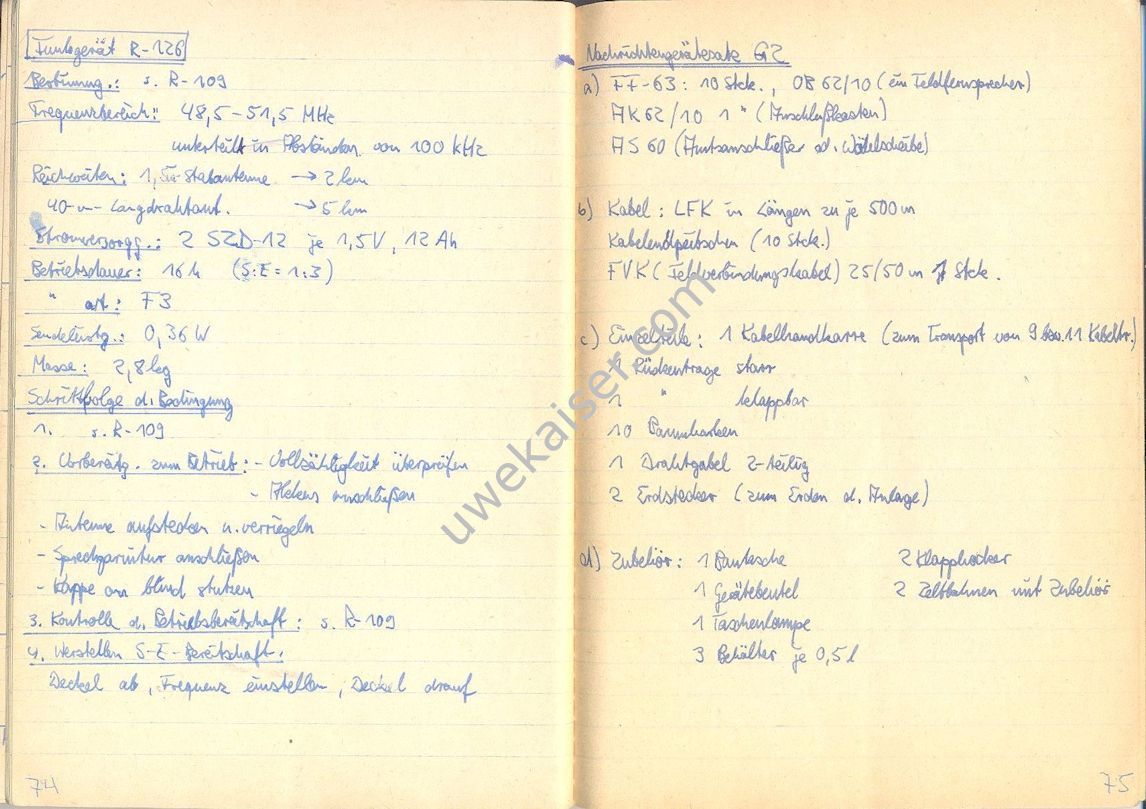 Funkgerät R-126
Bestimmung.: s. R-109
Frequenzbereich: 48,5-51,5 MHz
unterteilt in Abständen von 100 kHz
Reichweiten: 1,5m-Stabantenne → 2 km
40-m-Langdrahtant. → 5 km
Stromversorgg.: 2 SZD-12 je 1,5V, 12 Ah
Betriebsdauer: 16 h (S:E = 1:3)
" art: F3
Sendelstg.: 0,36 W
Masse: 2,8 kg
Schrittfolge d. Bedingung
1. s. R-109
2. Vorbereitg. zum Betrieb: - Vollzähligkeit überprüfen
- Akkus anschließen
- Antenne aufstecken u. verriegeln
- Sprechgarnitur anschließen
- Kappe am blind stutzen
3. Kontrolle d. Betriebsbereitschaft: s. R-109
4. Herstellen S-E-Bereitschaft:
Deckel ab, Frequenz einstellen, Deckel drauf
74
Nachrichtengerätesatz G2
a) FF-63: 10 Stck., OB 62/10 (ein Feldfernsprecher)
AK 62/10 1 " (Anschlußkasten)
AS 60 (Amtsanschließer od. Wählscheibe)
b) Kabel: LFK in Längen zu je 500 m
Kabelendpeitschen (10 Stck.)
FVK (Feldverbindungskabel) 25/50 m Stck.
c) Einzelteile: 1 Kabelhandkarre (zum Transport von 9 bzw. 11 Kabeltr.)
1 Rückentrage starr
1 " klappbar
10 Baumhaken
1 Drahtgabel 2-teilig
2 Erdstecker (zum Erden d. Anlage)
d) Zubehör: 1 Bautasche 2 Klapphocker
1 Gerätebeutel 2 Zeltbahnen mit Zubehör
1 Taschenlampe
3 Behälter je 0,5 l
75
uwekaiser.com